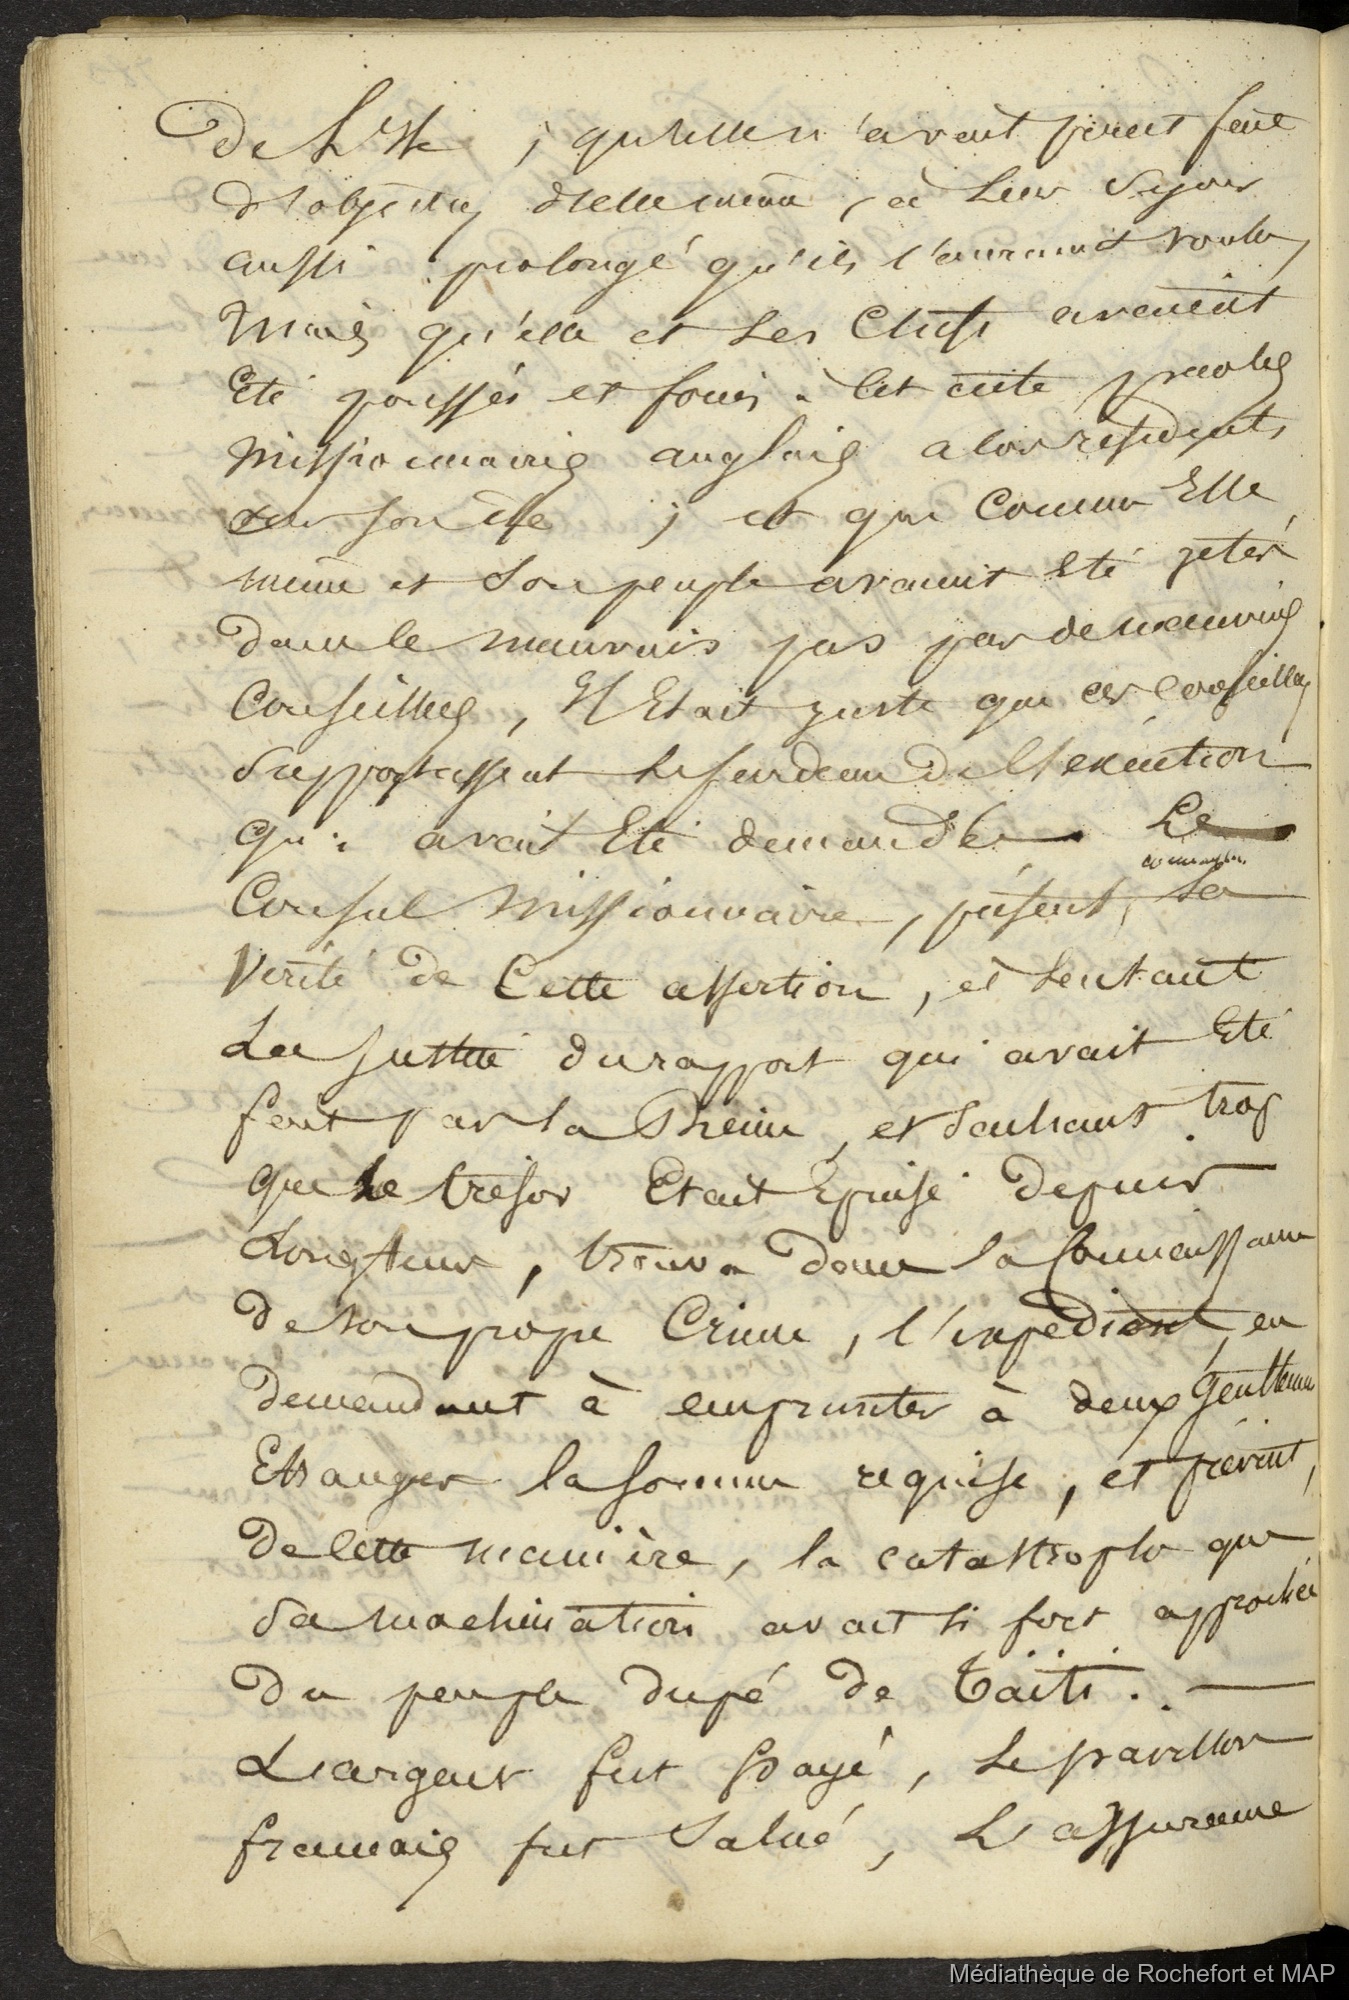 De L'Ile ; qu'elle n'avait point fait
d'objection d'elle même, à leur séjour
aussi prolongé qu'ils l'auraient voulu,
Mais qu'elle et ses Chefs avaient
Eté poussés et forcés à cet acte par les
Missionnaires anglais alors résidents
sur son ile ; et que Comme Elle
même et son peuple avaient Eté jetés
dans le mauvais pas par de mauvais
Conseillers, Il Etait juste que ces Conseillers
supportassent le fardeau de l'exécution
qui avait Eté demandée — Le
Consul Missionnaire, présent, connaissant la
Vérité de Cette assertion, et sentant
La justice du rapport qui avait Eté
fait par la Reine, et sachant trop
que le trésor Etait Epuisé depuis
Longtems, trouva dans la Connaissance
de son propre Crime, l'expédient, en
demandant à emprunter à deux Gentlemen
Etrangers la somme requise, et prévint,
De Cette manière, la catastrophe que
sa machination avait si fort approchée
du peuple dupé de Taïti. —
L'argent fut payé, le pavillon
français fut Salué, L'assurance
Médiathèque de Rochefort et MAP